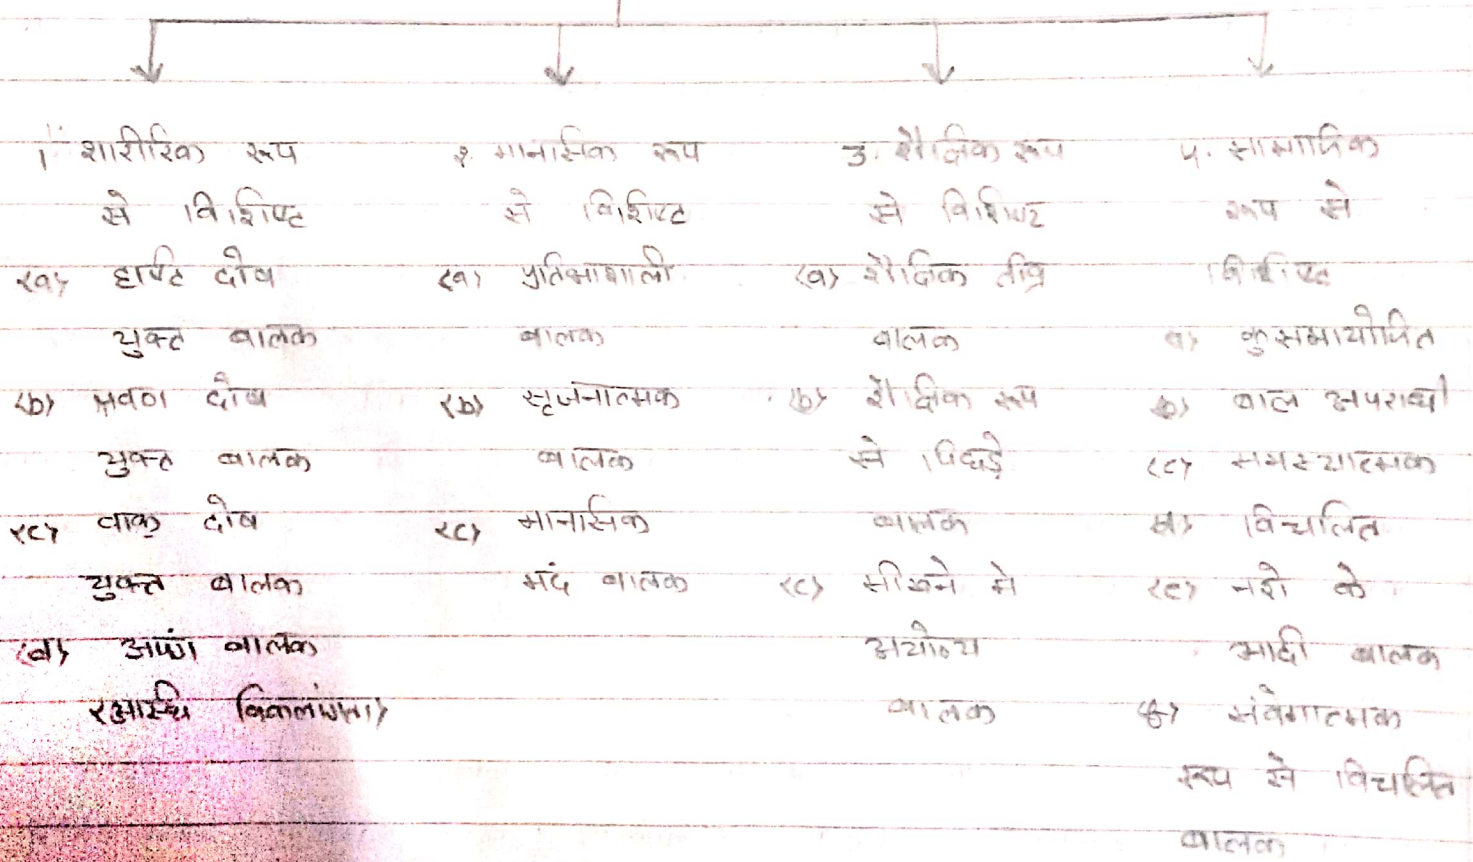 1. शारीरिक रूप
से विशिष्ट
(a) दृष्टि दोष
युक्त बालक
(b) श्रवण दोष
युक्त बालक
(c) वाक् दोष
युक्त बालक
(d) अपंग बालक
(अस्थि विकलांगता)
२. मानसिक रूप
से विशिष्ट
(a) प्रतिभाशाली
बालक
(b) सृजनात्मक
बालक
(c) मानसिक
मंद बालक
3. शैक्षिक रूप
से विशिष्ट
(a) शैक्षिक तीव्र
बालक
(b) शैक्षिक रूप
से पिछड़े
बालक
(c) सीखने मे
अयोग्य
बालक
4. सामाजिक
रूप से
विशिष्ट
a) कुसमायोजित
b) बाल अपराधी
(c) समस्यात्मक
d) विचलित
(e) नशे के
आदी बालक
संवेगात्मक
रूप से विचलित
बालक